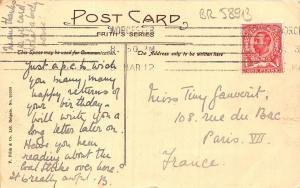 POST CARD
BR 589B
FRITH'S SERIES
This Space may be used for Communication
The Address only to be written here
8.50 PM
MAR 12
ONE PENNY
Just a p.c. to wish
you many, many
happy returns of
your birthday.
Will write you a
long letter later on.
Have you been
reading about the
Coal Strike over here.
It's really awful. B.
Miss Tiny Gauverit,
108. rue du Bac
Paris. VII
France.
F. Frith & Co. Ltd., Reigate.